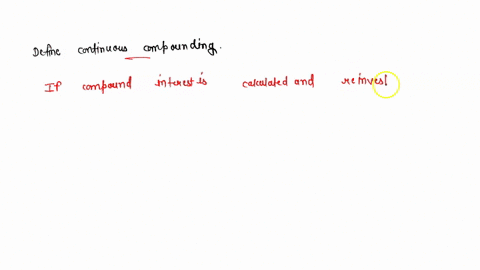 Define continuous compounding.
If compound interest is calculated and reinvest